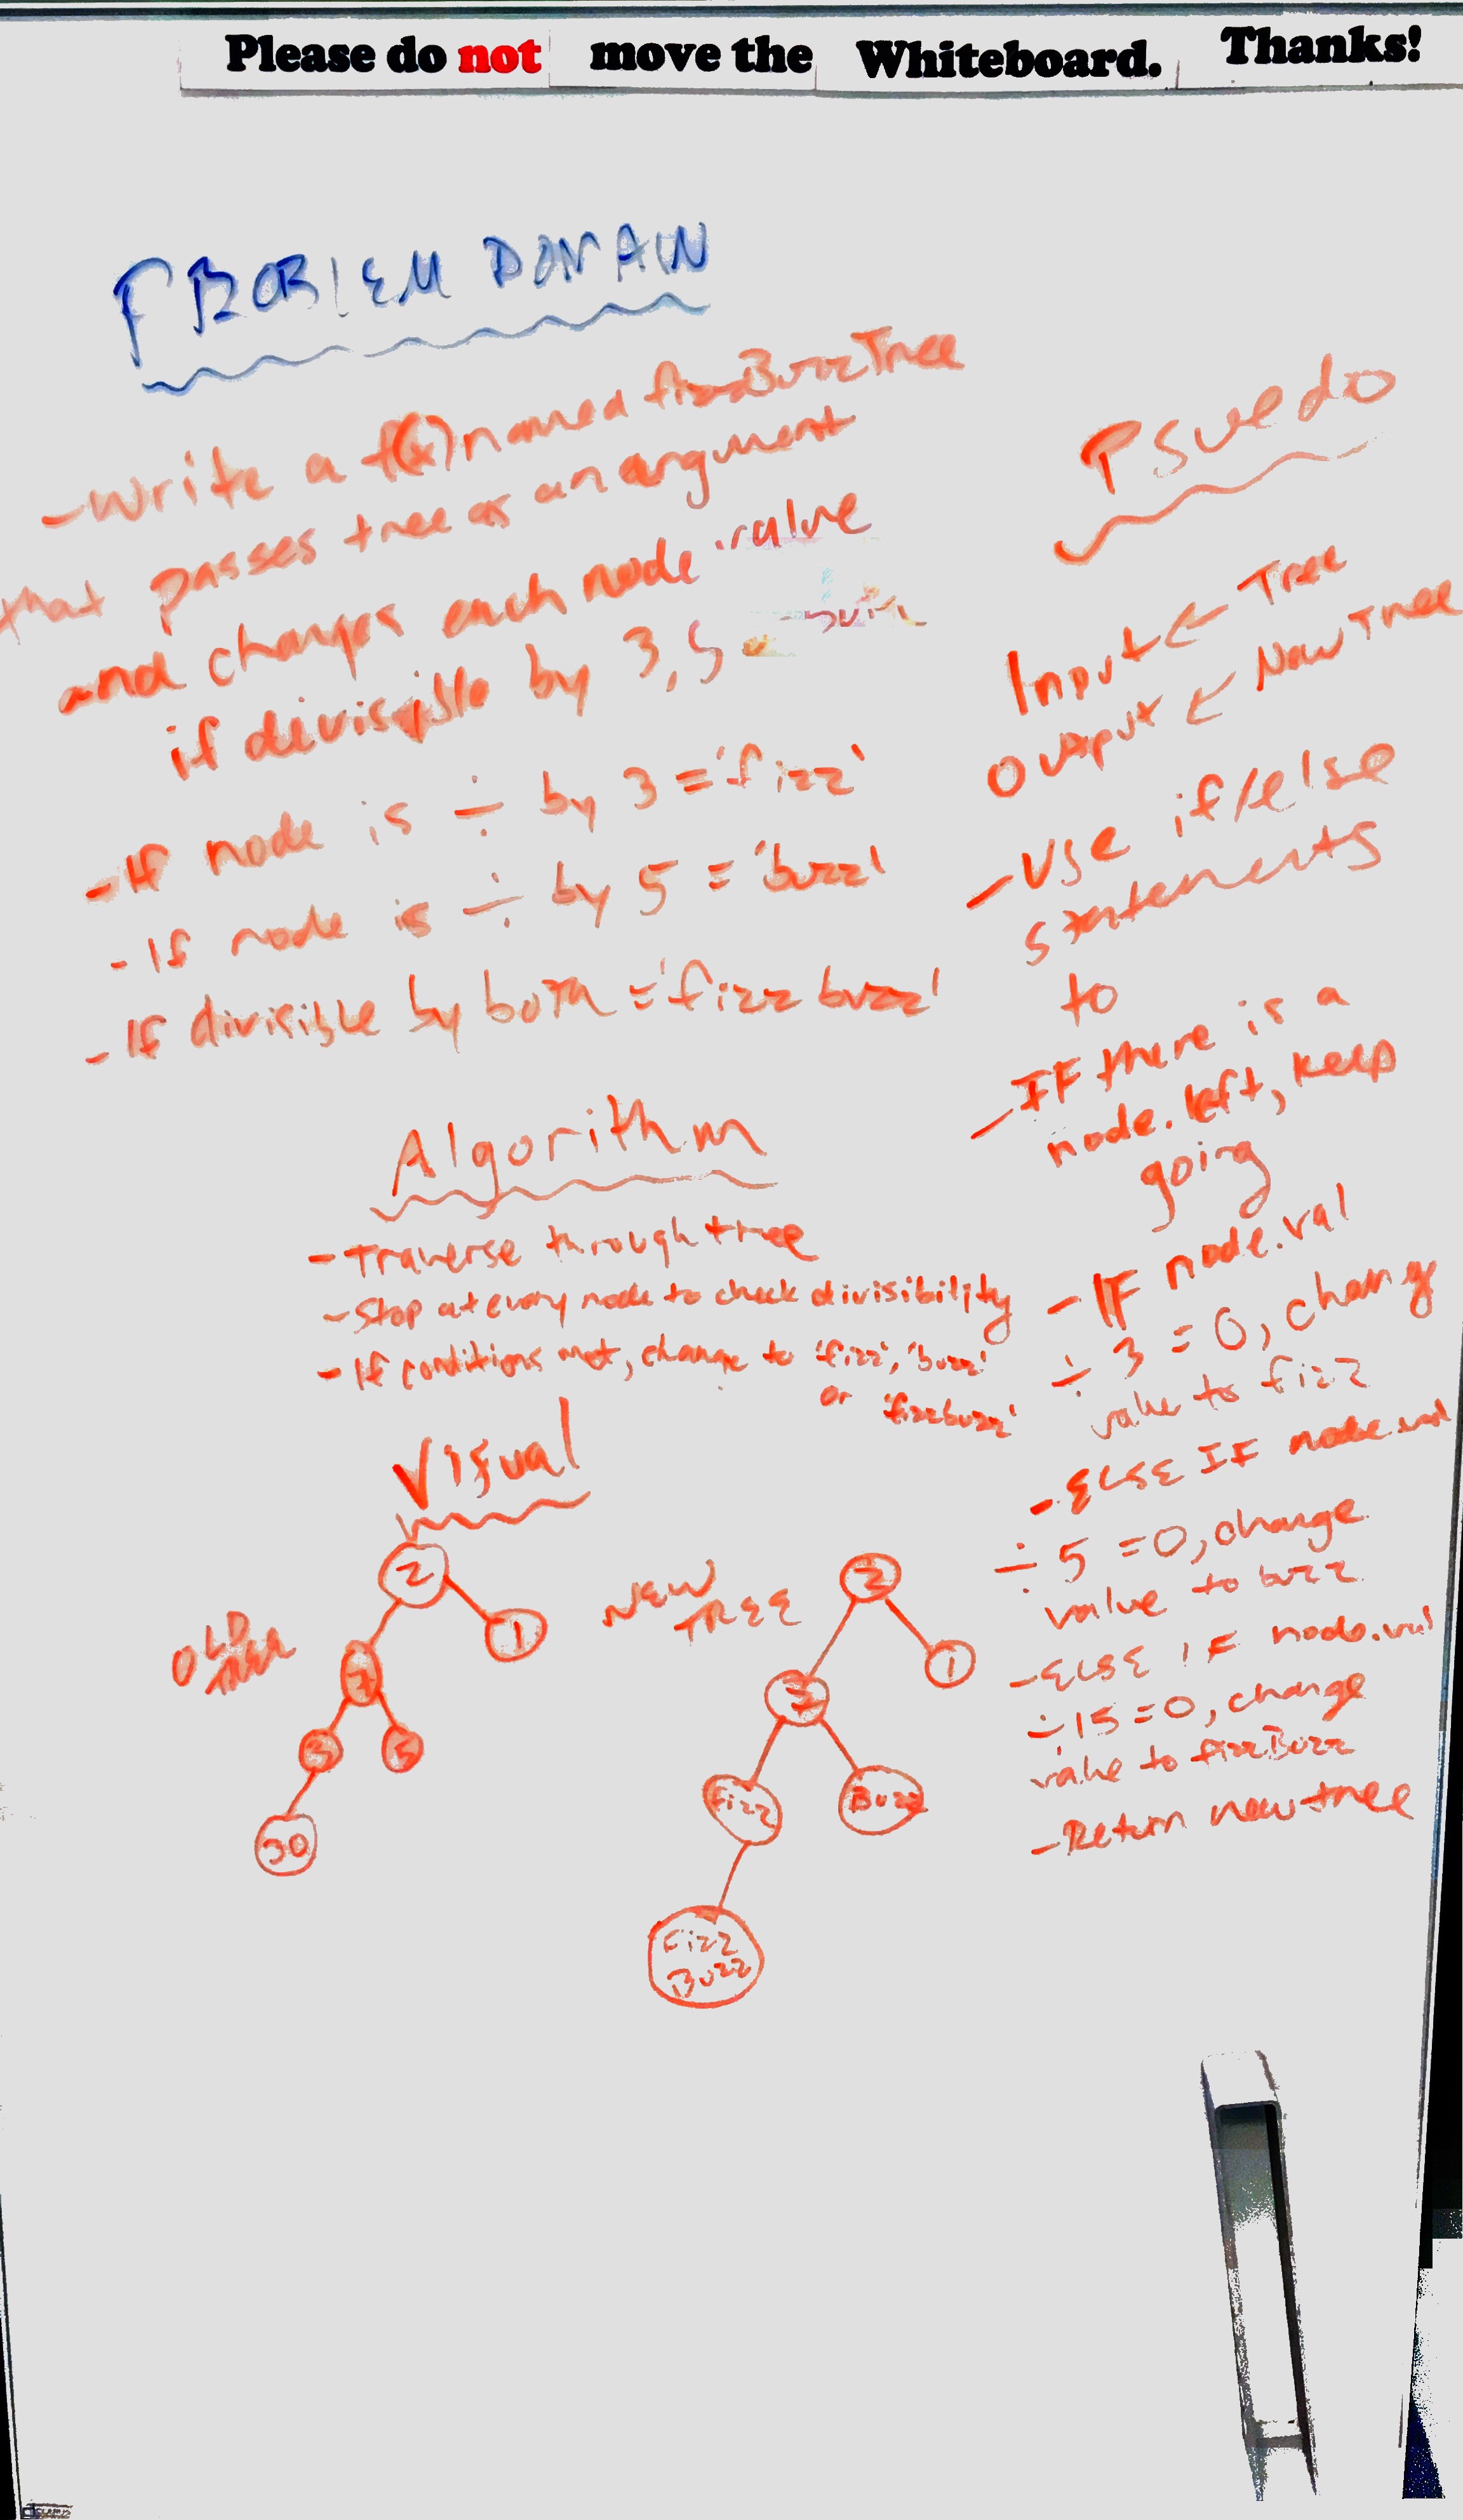 Please do not move the Whiteboard. Thanks!
PROBLEM DOMAIN
-Write a f(x) named fizzBuzzTree
that passes tree as an argument
and changes each node value
if divisible by 3, 5
-If node is ÷ by 3 = 'fizz'
-If node is ÷ by 5 = 'buzz'
-If divisible by both = 'fizz buzz'
Algorithm
-Traverse through tree
-Stop at every node to check divisibility
-If conditions met, change to 'fizz', 'buzz'
or 'fizzbuzz'
Visual
OLD
TREE
2
1
7
3
5
30
NEW
TREE
2
1
7
Fizz
Buzz
Fizz
Buzz
Psuedo
Input ← Tree
Output ← New Tree
-Use if/else
statements
to
-IF there is a
node.left, keep
going
-IF node.val
÷ 3 = 0, change
value to fizz
-ELSE IF node.val
÷ 5 = 0, change
value to buzz
-ELSE IF node.val
÷ 15 = 0, change
value to fizzBuzz
-Return new tree